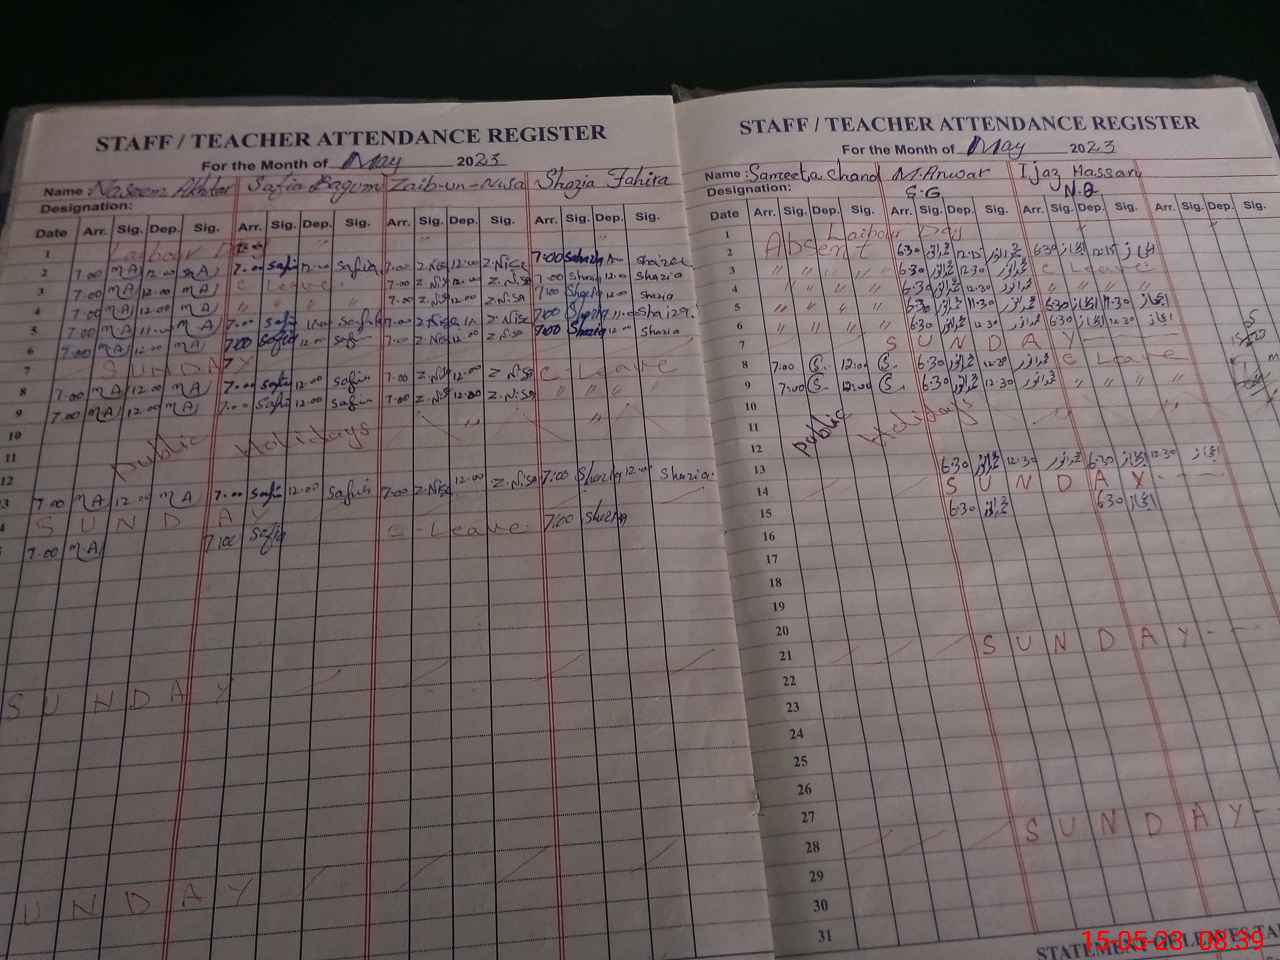 STAFF / TEACHER ATTENDANCE REGISTER
For the Month of May 2023
Name: Naseem Akhtar Safia Bagum Zaib-un-Nisa Shazia Tahira
Designation:
Date Arr. Sig. Dep. Sig. Arr. Sig. Dep. Sig. Arr. Sig. Dep. Sig. Arr. Sig. Dep. Sig.
1 Laibour Day
2 7.00 MA 12.00 MA 7.00 Safia 12.00 Safia 7.00 Z.Nisa 12.00 Z.Nisa 7:00 Shazia
3 7.00 MA 12.00 MA C Leave 7.00 Z.Nisa 12.00 Z.Nisa 7:00 Shazia 12.00 Shazia
4 7.00 MA 12.00 MA " " " " 7.00 Z.Nisa 12.00 Z.Nisa 7:00 Shazia 12.00 Shazia
5 7.00 MA 11.00 MA 7.00 Safia Safia 7.00 Z.Nisa Z.Nisa 7:00 Shazia 11.00 Shazia
6 7.00 MA 12.00 MA 7:00 Safia 12.00 Safia 7.00 Z.Nisa 12.00 Z.Nisa 7:00 Shazia 12.00 Shazia
7 SUNDAY
8 7.00 MA 12.00 MA 7.00 Safia 12.00 Safia 7.00 Z.Nisa 12.00 Z.Nisa C-Leave
9 7.00 MA 12.00 MA 7.00 Safia 12.00 Safia 7.00 Z.Nisa 12.00 Z.Nisa " " " "
10
11 Public Holidays "
12
13 7.00 MA 12.00 MA 7.00 Safia 12.00 Safia 7.00 Z.Nisa 12.00 Z.Nisa 7:00 Shazia 12.00 Shazia
SUNDA
7.00 MA 7:00 Safia C-Leave 7:00 Shazia
SUNDAY
UNDAY
STAFF / TEACHER ATTENDANCE REGISTER
For the Month of May 2023
Name: Sameeta Chand M.Anwar Ijaz Hassan
Designation: S.G N.Q
Date Arr. Sig. Dep. Sig. Arr. Sig. Dep. Sig. Arr. Sig. Dep. Sig. Arr. Sig. Dep. Sig.
1 Laibour Day
2 Absent 6:30 12:15 6:30 اعجاز 12:15 اعجاز
3 " " " " 6:30 12:30 C Leave
4 " " " " 6:30 12:30 " " " "
5 " " " " 6:30 11:30 6:30 اعجاز 11:30 اعجاز
6 " " " " 6:30 12:30 6:30 اعجاز 12:30 اعجاز
7 SUNDAY
8 7:00 S. 12:00 S. 6:30 12:30 C Leave
9 7:00 S. 12:00 S. 6:30 12:30 " " " "
10
11 Public Holidays
12
13 6:30 12:30 6:30 اعجاز 12:30 اعجاز
14 SUNDAY
15 6:30 6:30 اعجاز
16
17
18
19
20
21 SUNDAY
22
23
24
25
26
27
28 SUNDAY
29
30
31
STATEMENT OF LEAVES TA
15-05-23 08:39